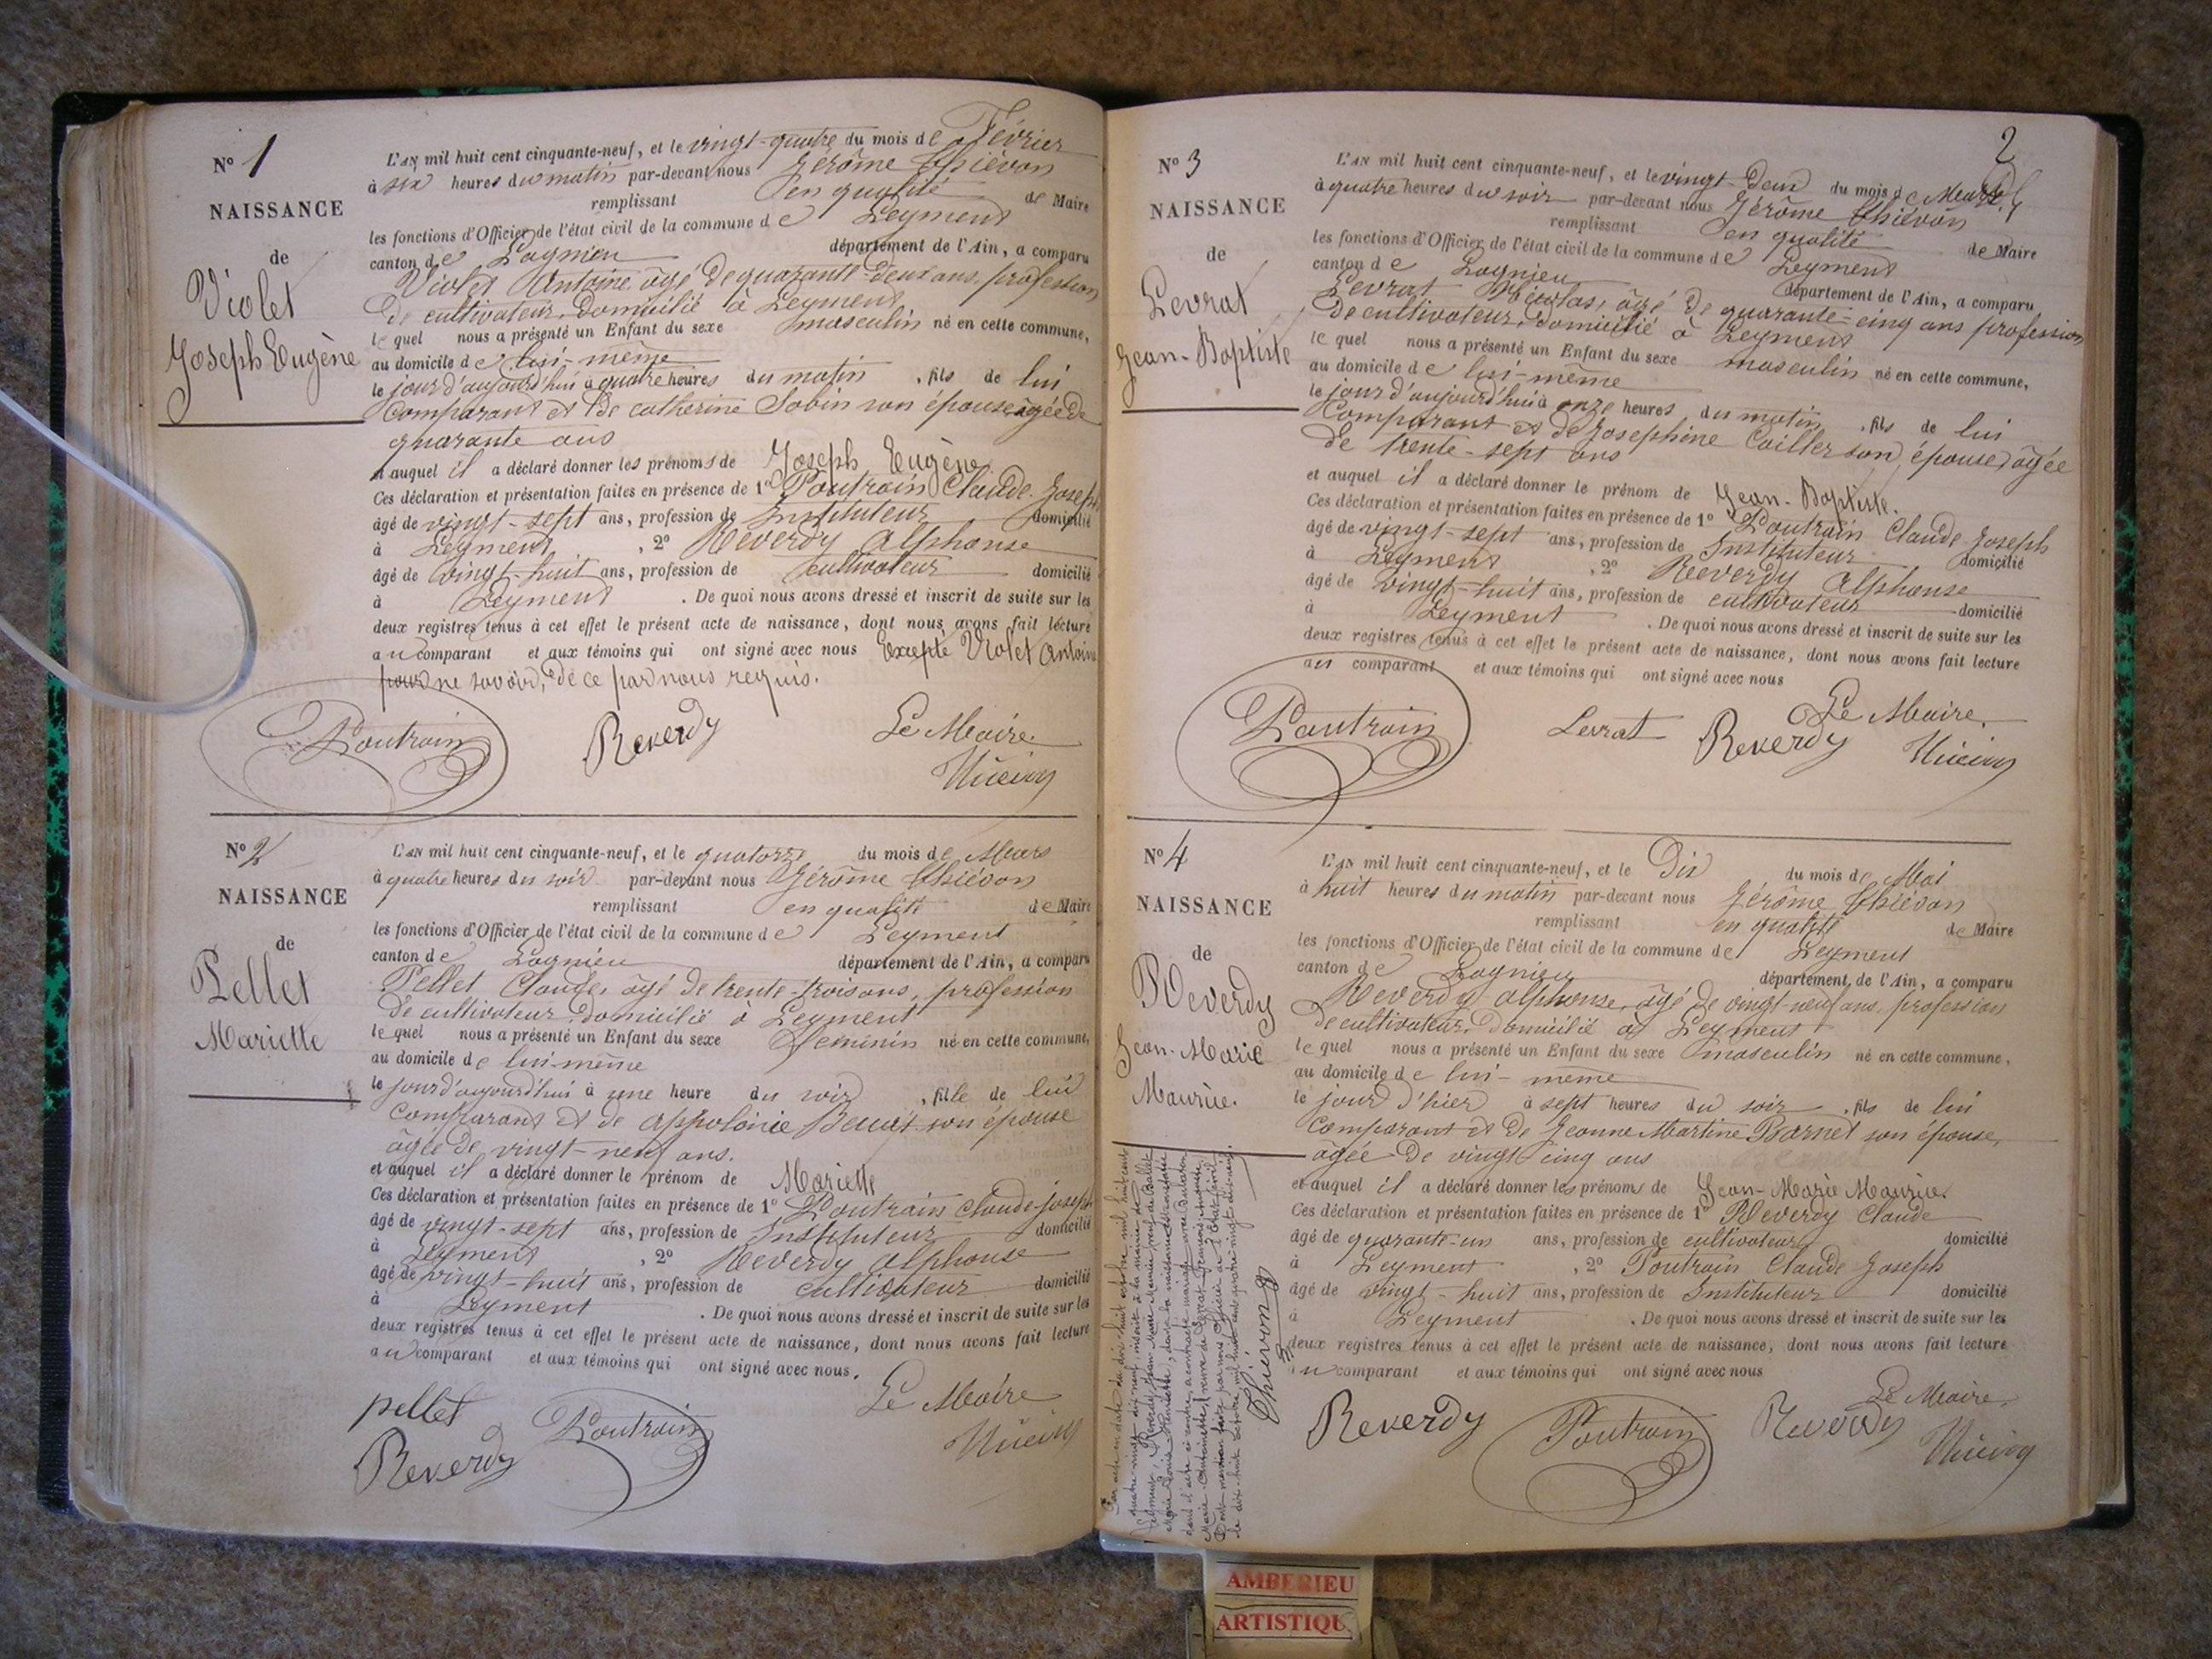 N° 1
NAISSANCE
de
Violet
Joseph Eugène
L'AN mil huit cent cinquante-neuf, et le vingt-quatre du mois de Février
à six heures du matin par-devant nous Jérôme Thiévon
remplissant en qualité de Maire
les fonctions d'Officier de l'état civil de la commune de Leyment
canton de Lagnieu département de l'Ain, a comparu
Violet Antoine âgé de quarante-deux ans, profession
de cultivateur, domicilié à Leyment,
lequel nous a présenté un Enfant du sexe masculin né en cette commune,
au domicile de lui-même
le jour d'aujourd'hui à quatre heures du matin, fils de lui
Comparant et de Catherine Sobin son épouse âgée de
quarante ans
et auquel il a déclaré donner les prénoms de Joseph Eugène
Ces déclaration et présentation faites en présence de 1° Poutrain Claude-Joseph
âgé de vingt-sept ans, profession de Instituteur domicilié
à Leyment, 2° Reverdy Alphonse
âgé de vingt-huit ans, profession de cultivateur domicilié
à Leyment. De quoi nous avons dressé et inscrit de suite sur les
deux registres tenus à cet effet le présent acte de naissance, dont nous avons fait lecture
au comparant et aux témoins qui ont signé avec nous Excepté Violet Antoine
pour ne savoir, de ce par nous requis.
Poutrain Reverdy Le Maire
Thiévon
N° 2
NAISSANCE
de
Pellet
Mariette
L'AN mil huit cent cinquante-neuf, et le quatorze du mois de Mars
à quatre heures du soir par-devant nous Jérôme Thiévon
remplissant en qualité de Maire
les fonctions d'Officier de l'état civil de la commune de Leyment
canton de Lagnieu département de l'Ain, a comparu
Pellet Claude, âgé de trente-trois ans, profession
de cultivateur, domicilié à Leyment
lequel nous a présenté un Enfant du sexe féminin né en cette commune,
au domicile de lui-même
le jour d'aujourd'hui à une heure du soir, fille de lui
Comparant et de Appolonie son épouse
âgée de vingt-neuf ans.
et auquel il a déclaré donner le prénom de Mariette
Ces déclaration et présentation faites en présence de 1° Poutrain Claude joseph
âgé de vingt-sept ans, profession de Instituteur domicilié
à Leyment, 2° Reverdy Alphonse
âgé de vingt-huit ans, profession de cultivateur domicilié
à Leyment. De quoi nous avons dressé et inscrit de suite sur les
deux registres tenus à cet effet le présent acte de naissance, dont nous avons fait lecture
au comparant et aux témoins qui ont signé avec nous.
pellet Poutrain Le Maire
Reverdy Thiévon
2
N° 3
NAISSANCE
de
Levrat
Jean-Baptiste
L'AN mil huit cent cinquante-neuf, et le vingt-deux du mois de
à quatre heures du soir par-devant nous Jérôme Thiévon
remplissant en qualité de Maire
les fonctions d'Officier de l'état civil de la commune de Leyment
canton de Lagnieu département de l'Ain, a comparu
Levrat Nicolas, âgé de quarante-cinq ans profession
de cultivateur, domicilié à Leyment
lequel nous a présenté un Enfant du sexe masculin né en cette commune,
au domicile de lui-même
le jour d'aujourd'hui à onze heures du matin, fils de lui
Comparant et de Josephine Cailler son épouse, âgée
de trente-sept ans
et auquel il a déclaré donner le prénom de Jean-Baptiste.
Ces déclaration et présentation faites en présence de 1° Poutrain Claude-Joseph
âgé de vingt-sept ans, profession de Instituteur domicilié
à Leyment, 2° Reverdy Alphonse
âgé de vingt-huit ans, profession de cultivateur domicilié
à Leyment. De quoi nous avons dressé et inscrit de suite sur les
deux registres tenus à cet effet le présent acte de naissance, dont nous avons fait lecture
au comparant et aux témoins qui ont signé avec nous
Poutrain Levrat Reverdy Le Maire.
Thiévon
N° 4
NAISSANCE
de
Reverdy
Jean-Marie
Maurice.
L'AN mil huit cent cinquante-neuf, et le Dix du mois de Mai
à huit heures du matin par-devant nous Jérôme Thiévon
remplissant en qualité de Maire
les fonctions d'Officier de l'état civil de la commune de Leyment
canton de Lagnieu département de l'Ain, a comparu
Reverdy Alphonse, âgé de vingt-neuf ans, profession
de cultivateur, domicilié à Leyment
lequel nous a présenté un Enfant du sexe masculin né en cette commune,
au domicile de lui-même
le jour d'hier à sept heures du soir, fils de lui
Comparant et de Jeanne Martine Barnet son épouse,
âgée de vingt-cinq ans
et auquel il a déclaré donner les prénoms de Jean-Marie Maurice.
Ces déclaration et présentation faites en présence de 1° Reverdy Claude
âgé de quarante-un ans, profession de cultivateur domicilié
à Leyment, 2° Poutrain Claude Joseph
âgé de vingt-huit ans, profession de Instituteur domicilié
à Leyment. De quoi nous avons dressé et inscrit de suite sur les
deux registres tenus à cet effet le présent acte de naissance, dont nous avons fait lecture
au comparant et aux témoins qui ont signé avec nous
Reverdy Poutrain Reverdy Le Maire.
Thiévon
Par acte en date du dix-huit octobre mil huit cent
quatre vingt dix neuf, inscrit à la mairie de
Leyment, Reverdy Jean Marie Maurice, veuf de
Marie Louise, dont la naissance
dont l'acte ci contre, a contracté mariage avec
Marie Antoinette,
Dont mention faite par nous Officier de l'Etat civil
le dix-huit octobre mil huit cent quatre vingt dix neuf.
Thiévon J
AMBERIEU
ARTISTIQUE